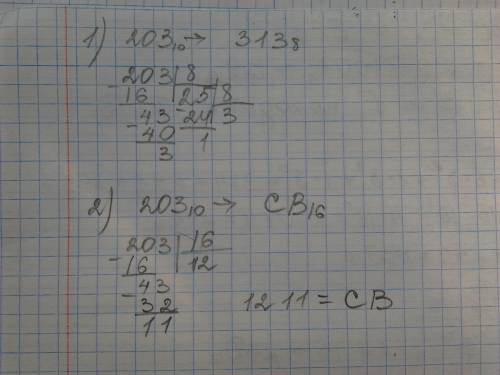 1) 203₁₀ → 313₈
203 | 8
16 | 25 | 8
43 24 3
40 1
3
2) 203₁₀ → CB₁₆
203 | 16
16 | 12
43
32 12 11 = CB
11